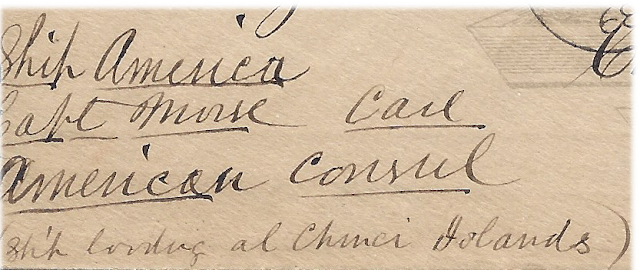 Ship America
Capt Morse Care
American Consul
(Ship loading at Chinci Islands)